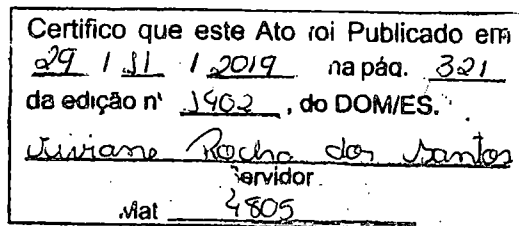 Certifico que este Ato roi Publicado em
29 / 11 / 2019 na páq. 321
da edição n' 1402, do DOM/ES.
Viviane Rocha dos Santos
Servidor
Mat 4805